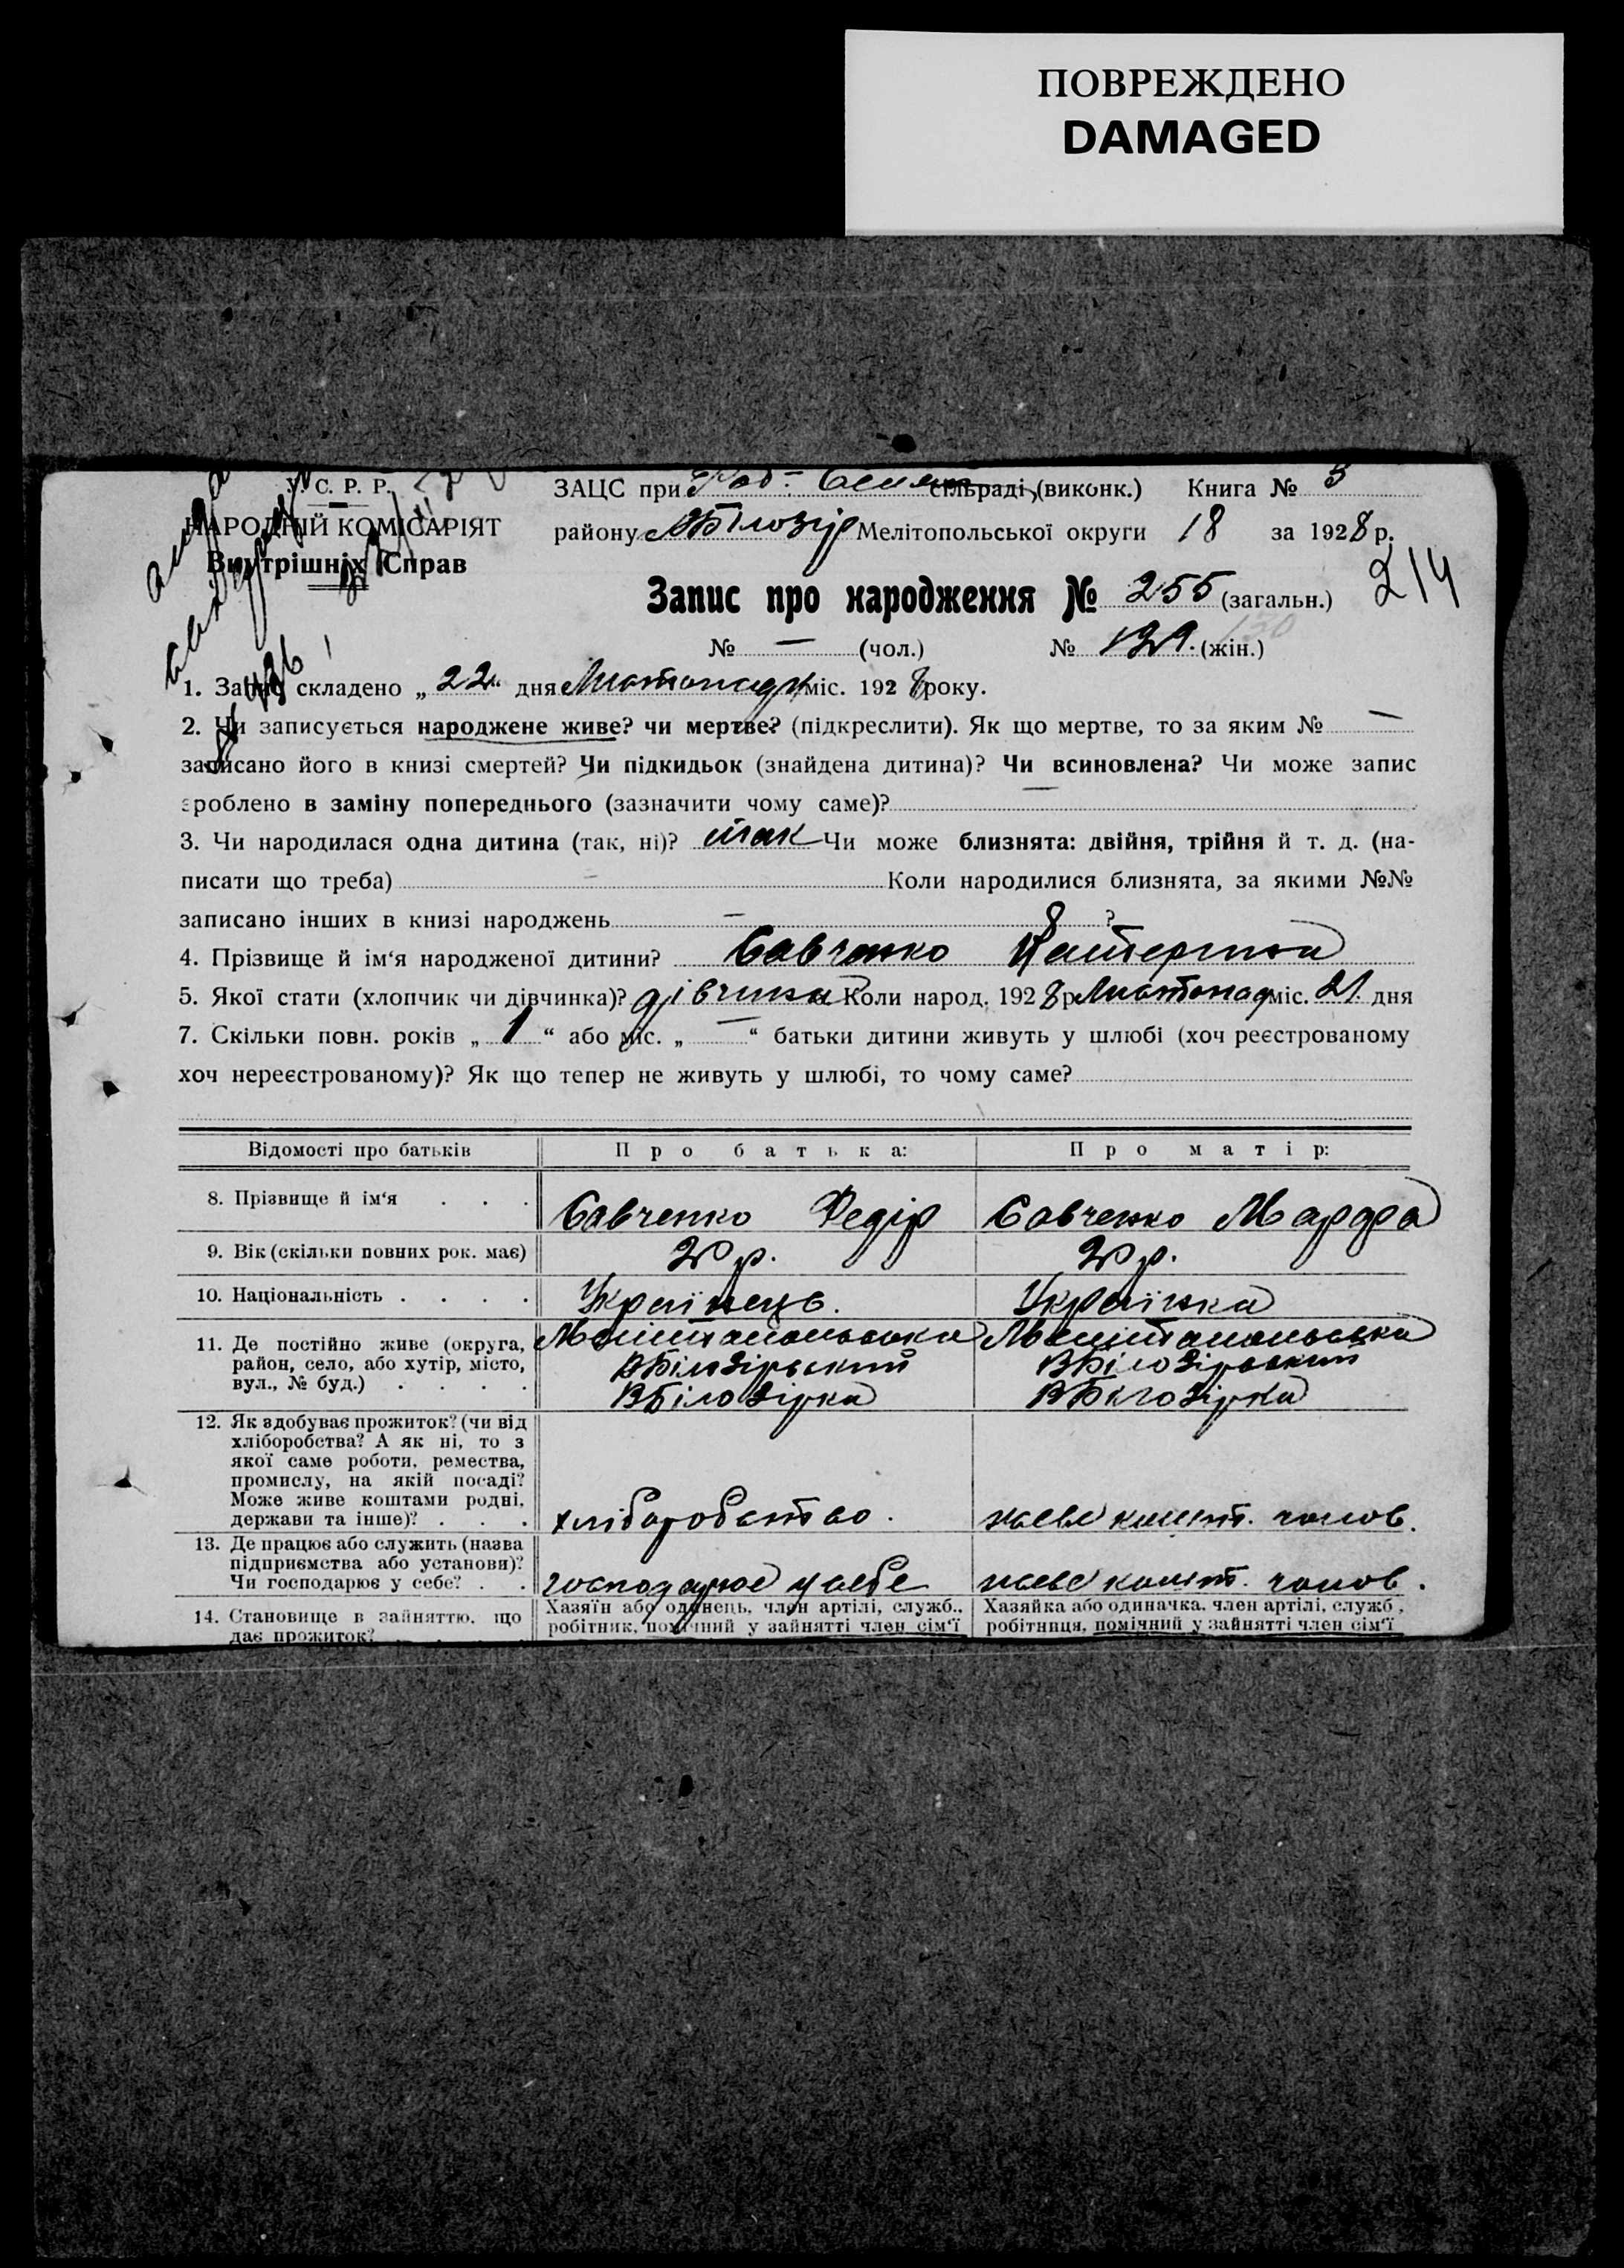 ПОВРЕЖДЕНО
DAMAGED
У. С. Р. Р.
НАРОДНІЙ КОМІСАРІЯТ
Внутрішніх Справ
ЗАЦС при сільраді, (виконк.) Книга № 3
району ВБілозір Мелітопольської округи 18 за 1928 р.
Запис про народження № 255 (загальн.) 214
№ — (чол.) № 129. (жін.) 130
1. Запис складено „22“ дня Листопаду міс. 1928 року.
2. Чи записується народжене живе? чи мертве? (підкреслити). Як що мертве, то за яким № —
записано його в книзі смертей? Чи підкидьок (знайдена дитина)? Чи всиновлена? Чи може запис
зроблено в заміну попереднього (зазначити чому саме)? —
3. Чи народилася одна дитина (так, ні)? так Чи може близнята: двійня, трійня й т. д. (на-
писати що треба) — Коли народилися близнята, за якими №№
записано інших в книзі народжень — ?
4. Прізвище й ім‘я народженої дитини? Савченко Катерина
5. Якої стати (хлопчик чи дівчинка)? дівчина Коли народ. 1928 р Листопад міс. 21. дня
7. Скільки повн. років „ 1 “ або міс. „ — “ батьки дитини живуть у шлюбі (хоч реєстрованому
хоч нереєстрованому)? Як що тепер не живуть у шлюбі, то чому саме?
Відомості про батьків Про батька: Про матір:
8. Прізвище й ім‘я . . . Савченко Федір Савченко Марфа
9. Вік (скільки повних рок. має) 20 р. 20 р.
10. Національність . . . . Українець. Українка
11. Де постійно живе (округа, Мелітопольська Мелітопольська
район, село, або хутір, місто, ВБілозірський ВБілозірський
вул., № буд.) . . . . ВБілозірка ВБілозірка
12. Як здобуває прожиток? (чи від
хліборобства? А як ні, то з
якої саме роботи, ремества,
промислу, на якій посаді?
Може живе коштами родні,
держави та інше)? . . . хліборобство. живе кошт. чолов.
13. Де працює або служить (назва
підприємства або установи)?
Чи господарює у себе? . . господарює у себе живе кошт. чолов.
14. Становище в зайняттю, що Хазяїн або одинець, член артілі, служб., Хазяйка або одиначка, член артілі, служб.,
дає прожиток? робітник, помічний у зайнятті член сім‘ї робітниця, помічний у зайнятті член сім‘ї